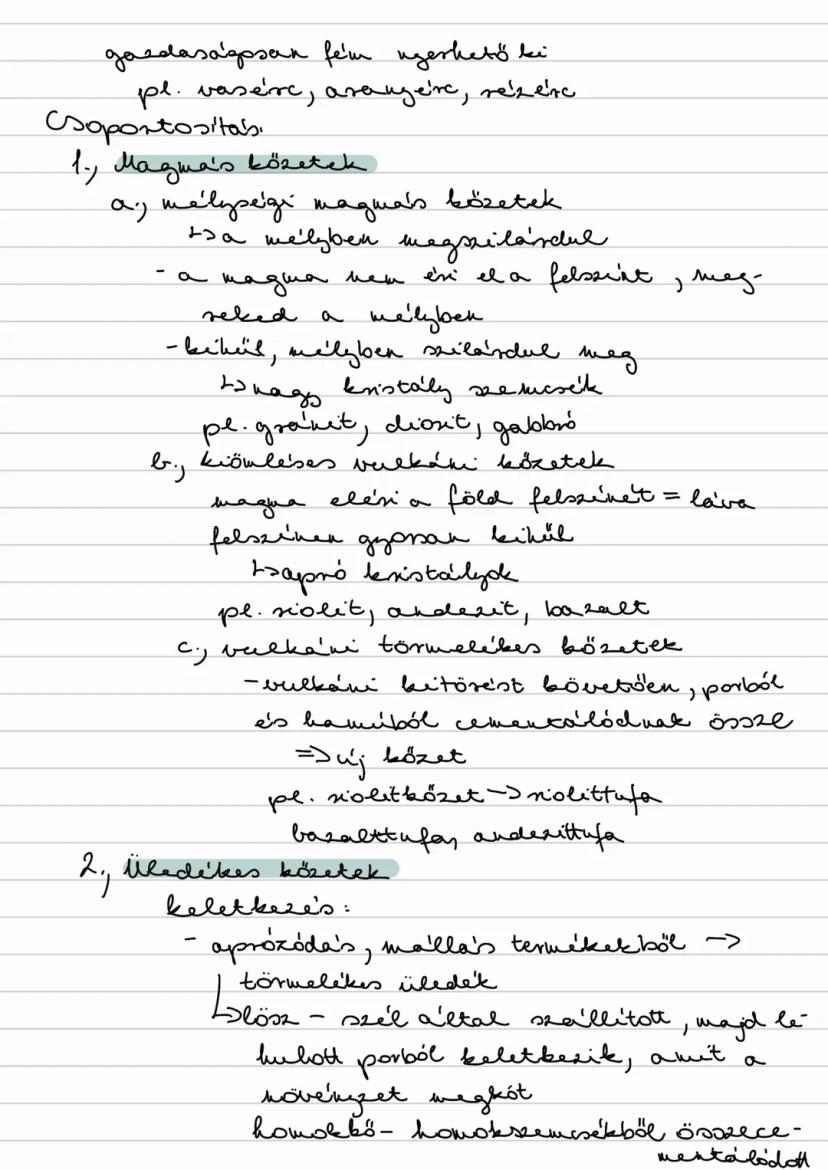 gazdaságosan fém nyerhető ki
pl. vasérc, aranyérc, rézérc
Csoportosítás:
1., Magmás kőzetek
a., mélységi magmás kőzetek
↳ a mélyben megszilárdul
- a magma nem éri el a felszínt, meg-
reked a mélyben
- kihűl, mélyben szilárdul meg
↳ nagy kristály szemcsék
pl. gránit, diorit, gabbró
b., kiömléses vulkáni kőzetek
magma eléri a föld felszínét = láva
felszínen gyorsan kihűl
↳ apró kristályok
pl. riolit, andezit, bazalt
c., vulkáni törmelékes kőzetek
- vulkáni kitörést követően, porból
és hamúból cementálódnak össze
=> új kőzet
pl. riolitkőzet -> riolittufa
bazalttufa, andezittufa
2., Üledékes kőzetek
keletkezés:
- aprózódás, mállás termékekből ->
törmelékes üledék
↳ lösz - szél által szállított, majd le-
hullott porból keletkezik, amit a
növényzet megköt
homokkő - homokszemcsékből összece-
mentálódott